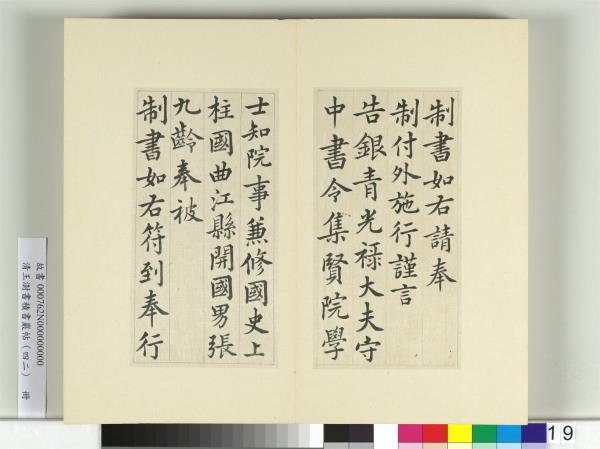 制書如右請奉
制付外施行謹言
告銀青光祿大夫守
中書令集賢院學
士知院事兼修國史上
柱國曲江縣開國男張
九齡奉被
制書如右符到奉行
故書 000762N000000000
清王澍書積書巖帖(四二) 冊
19